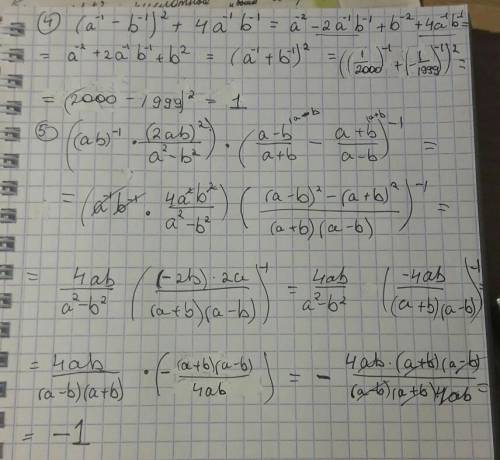 ④ (a⁻¹ - b⁻¹)² + 4a⁻¹b⁻¹ = a⁻² - 2a⁻¹b⁻¹ + b⁻² + 4a⁻¹b⁻¹ =
= a⁻² + 2a⁻¹b⁻¹ + b² = (a⁻¹ + b⁻¹)² = ((1/2000)⁻¹ + (-1/1999)⁻¹)² =
= (2000 - 1999)² = 1
⑤ ((ab)⁻¹ · (2ab)²/(a² - b²)) · ((a-b)/(a+b) ⁽ᵃ⁻ᵇ - (a+b)/(a-b) ⁽ᵃ⁺ᵇ)⁻¹ =
= (a⁻¹b⁻¹ · 4a²b²/(a² - b²)) (((a-b)² - (a+b)²)/((a+b)(a-b)))⁻¹ =
= 4ab/(a² - b²) ((-2b) · 2a/((a+b)(a-b)))⁻¹ = 4ab/(a² - b²) (-4ab/((a+b)(a-b)))⁻¹ =
= 4ab/((a-b)(a+b)) · (-(a+b)(a-b)/4ab) = - 4ab · (a+b)(a-b)/((a-b)(a+b)4ab) =
= -1